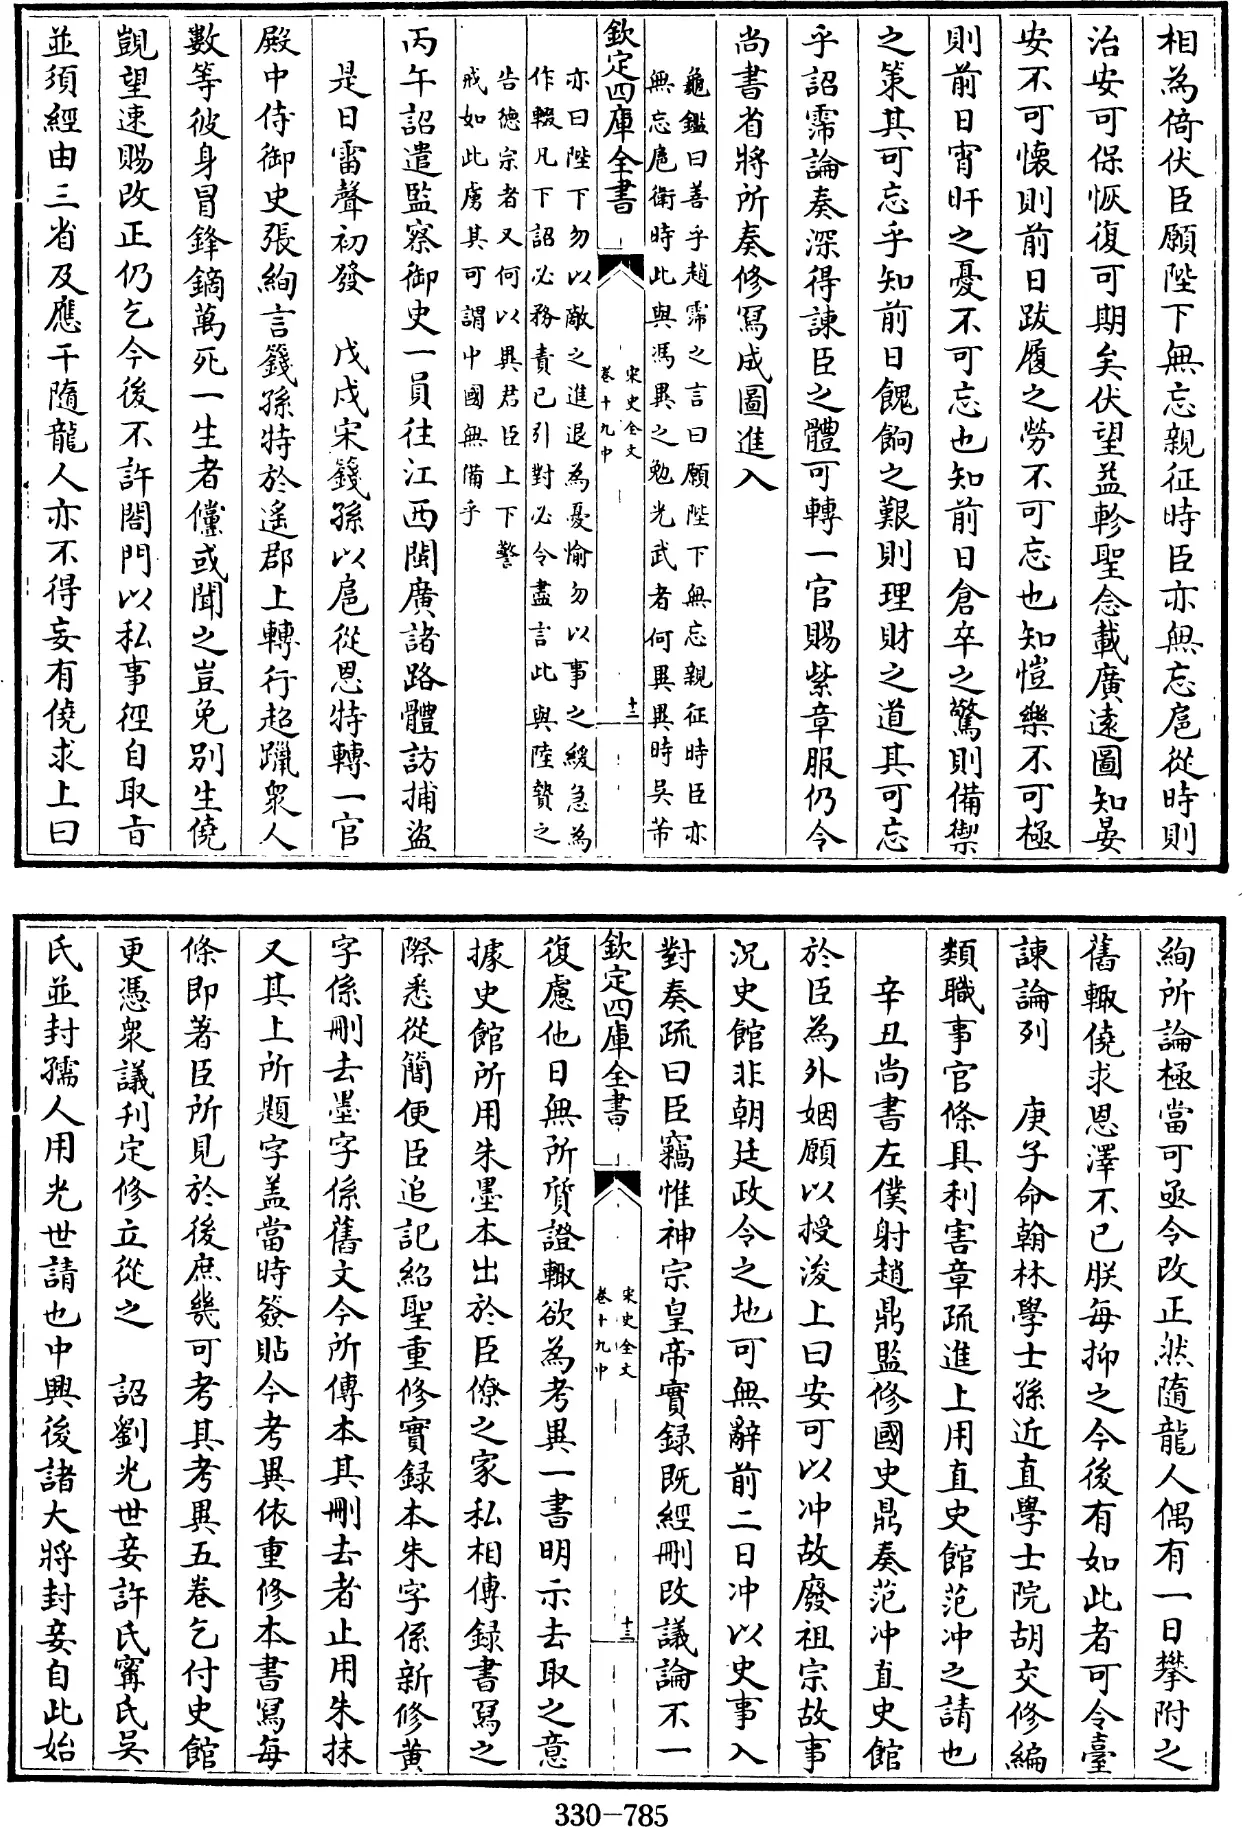 相為倚伏臣願陛下無忘親征時臣亦無忘扈從時則
治安可保恢復可期矣伏望益軫聖念載廣逺圖知晏
安不可懐則前日跋履之勞不可忘也知愷樂不可極
則前日宵旰之憂不可忘也知前日倉卒之驚則備禦
之策其可忘乎知前日餽餉之艱則理財之道其可忘
乎詔霈論奏深得諫臣之體可轉一官賜紫章服仍令
尚書省將所奏修寫成圖進入
龜鑑曰善乎趙霈之言曰願陛下無忘親征時臣亦
無忘扈衛時此與馮異之勉光武者何異異時吳芾
欽定四庫全書
宋史全文
卷十九中
十二
亦曰陛下勿以敵之進退為憂愉勿以事之緩急為
作輟凡下詔必務責已引對必令盡言此與陸贄之
告徳宗者又何以異君臣上下警
戒如此虜其可謂中國無備乎
丙午詔遣監察御史一員往江西閩廣諸路體訪捕盜
是日雷聲初發 戊戌宋籛孫以扈從恩特轉一官
殿中侍御史張絢言籛孫特於遥郡上轉行超躐衆人
數等彼身冒鋒鏑萬死一生者儻或聞之豈免别生僥
覬望速賜改正仍乞今後不許閤門以私事徑自取㫖
並須經由三省及應干隨龍人亦不得妄有僥求上曰
絢所論極當可亟令改正然隨龍人偶有一日攀附之
舊輙僥求恩澤不已朕每抑之今後有如此者可令臺
諫論列 庚子命翰林學士孫近直學士院胡交修編
類職事官條具利害章疏進上用直史館范冲之請也
辛丑尚書左僕射趙鼎監修國史鼎奏范冲直史館
於臣為外姻願以授浚上曰安可以冲故廢祖宗故事
況史館非朝廷政令之地可無辭前二日冲以史事入
對奏疏曰臣竊惟神宗皇帝實録既經刪改議論不一
欽定四庫全書
宋史全文
卷十九中
十三
復慮他日無所質證輙欲為考異一書明示去取之意
據史館所用朱墨本出於臣僚之家私相傳録書寫之
際悉從簡便臣追記紹聖重修實録本朱字係新修黄
字係刪去墨字係舊文今所傳本其刪去者止用朱抹
又其上所題字盖當時簽貼今考異依重修本書寫每
條即著臣所見於後庶幾可考其考異五卷乞付史館
更憑衆議刋定修立從之 詔劉光世妾許氏甯氏吳
氏並封孺人用光世請也中興後諸大將封妾自此始
330-785